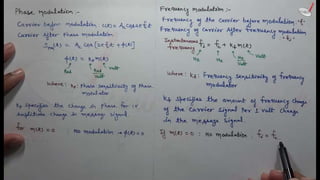 Phase modulation :-
Carrier before modulation : c(t) = Ac cos 2πfct
Carrier After Phase modulation
Spm(t) = Ac cos [2πfct + φ(t)]
φ(t) = kp m(t)
Rad
Rad/Volt
Volt
where : kp : Phase Sensitivity of Phase modulator
kp specifies the change in Phase for 1V
change in message signal.
for m(t) = 0 No modulation → φ(t) = 0
Frequency modulation :-
Frequency of the Carrier before modulation - fc
Frequency of Carrier After frequency modulation
- fi
Instantaneous
frequency fi = fc + kf m(t)
Hz
Hz
Hz/Volt
Volt
where : kf : Frequency Sensitivity of frequency
modulator
kf Specifies the amount of frequency change
of the Carrier Signal for 1 volt change
in the message Signal.
If m(t) = 0 : No modulation fi = fc